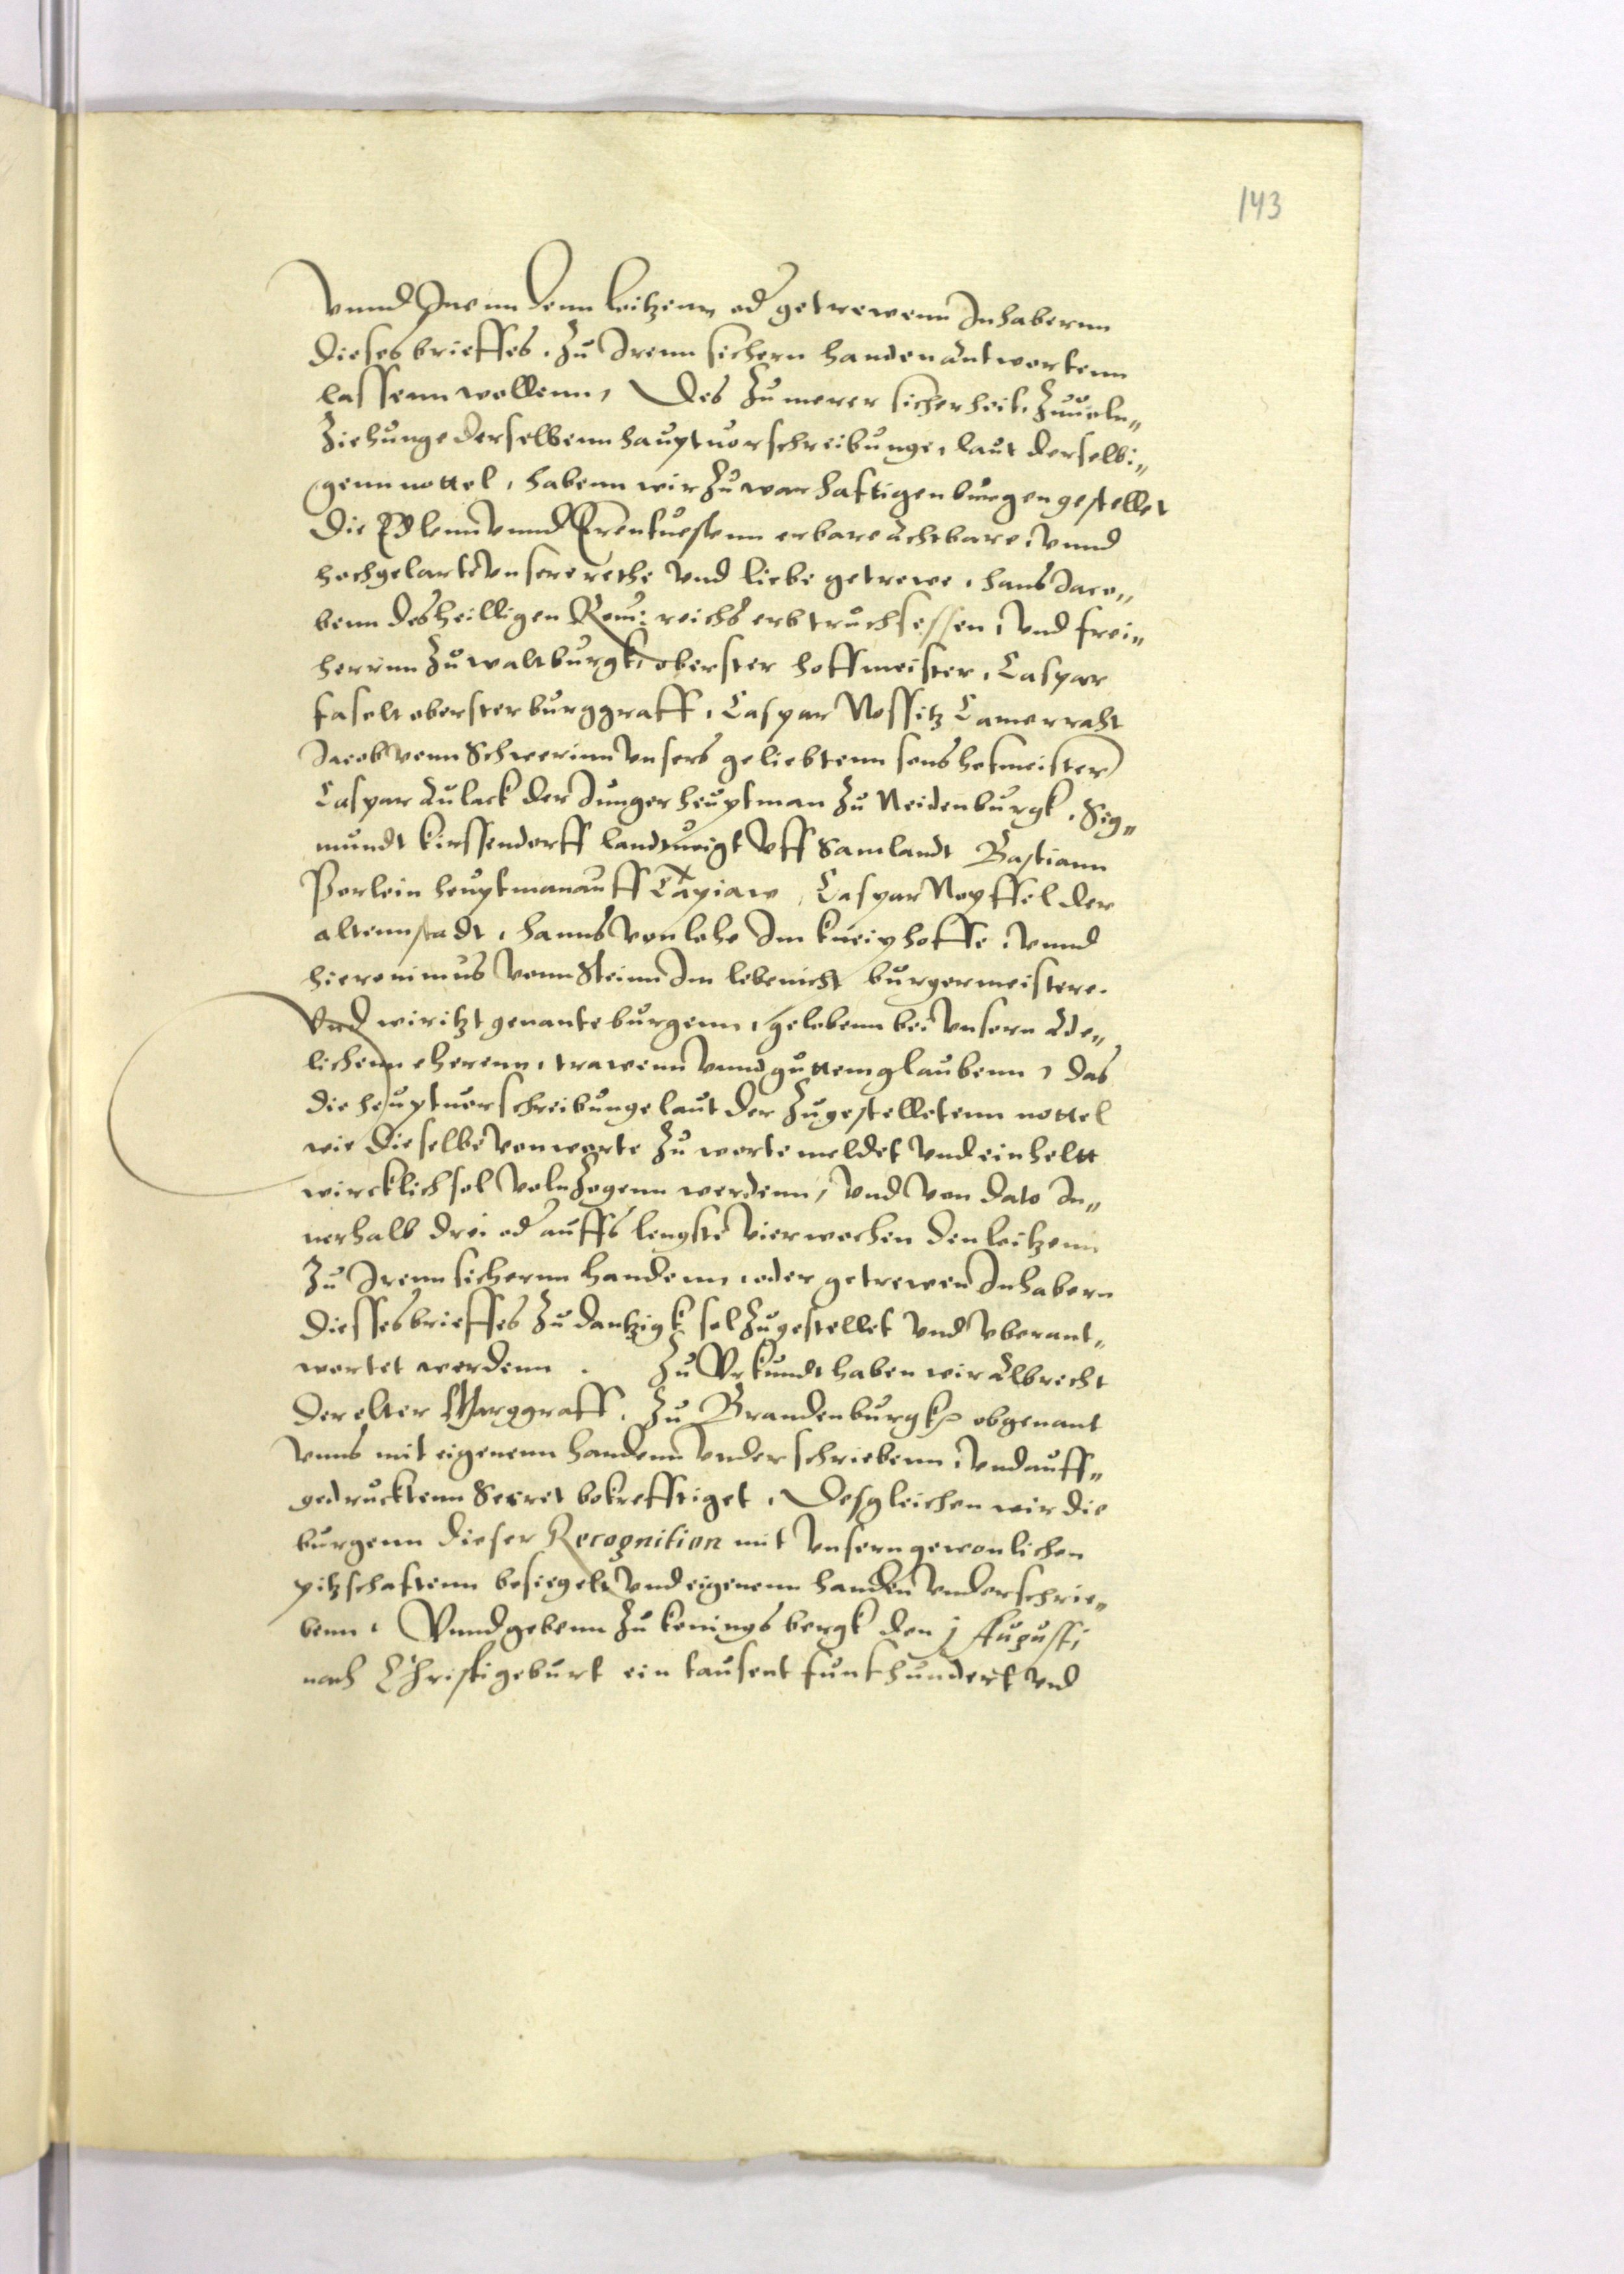 143
Vnnd Inenn denn leitzenn od getrewenn Inhabernn
dieses brieffes. Zu Irenn sichern handen antwortenn
lassenn wollenn, Des Zu merer sicherheit, Zuuoln„
Ziehunge derselbenn hauptuorschreibunge, laut derselbi„
genn nottel, habenn wir Zu warhaftigen burgen gestellet
die Edlenn vnnd Erentuestenn erbare achtbare, vnnd
hochgelarte vnsere rethe vnd liebe getrewe, hans Jaco„
benn des heilligen Rom: reichs erbtruchsessen, vnd frei„
herrnn Zu waltburgk, oberster hoffmeister, Caspar
faselt oberster burggraff, Caspar Nostitz Camerraht
Jacob vonn Schwerinn vnsers geliebtenn sons hofmeister
Caspar Aulack der Junger heuptman Zu Neidenburgk. Sig„
mundt kirssendorff landtuoigt vff Samlandt Bastiann
Perlein heuptman auff Tapiaw, Caspar Nopffel der
altennstadt, hanns von lohe Im kneiphoffe, vnnd
hieronimus vonn Steinn Im lebenicht burgermeistere.
Vnd wir itzt genante burgenn, gelobenn bei vnsern Ade„
lichenn eherenn, trawenn vnnd guttem glaubenn, das
die heuptuorschreibunge laut der Zugestelletenn nottel
wie dieselbe von worte Zu worte meldet vnd einheltt
wircklich sol volnZogenn werdenn, vnd von dato In„
nerhalb drei od auffs lengste vier wochen den leitzenn
Zu Irenn sichernn handenn, oder getrewen Inhabern
diesses brieffes Zu dantzigk sol Zugestellet vnd vberant„
wortet werdenn. Zu Vrkundt haben wir Albrecht
der elter Marggraff. Zu Brandenburgk obgenant
vnns mit eigenenn handenn vnderschriebenn, vnd auff„
gedrucktenn Secret bekrefftiget, Desgleichen wir die
burgenn dieser Recognition mit vnsern gewonlichen
pitzschaftenn besiegelt vnd eigenenn handen vnderschrie„
benn. Vnnd gebenn Zu konings bergk den j Augusti
nach Christi geburt ein tausent funfhundert vnd